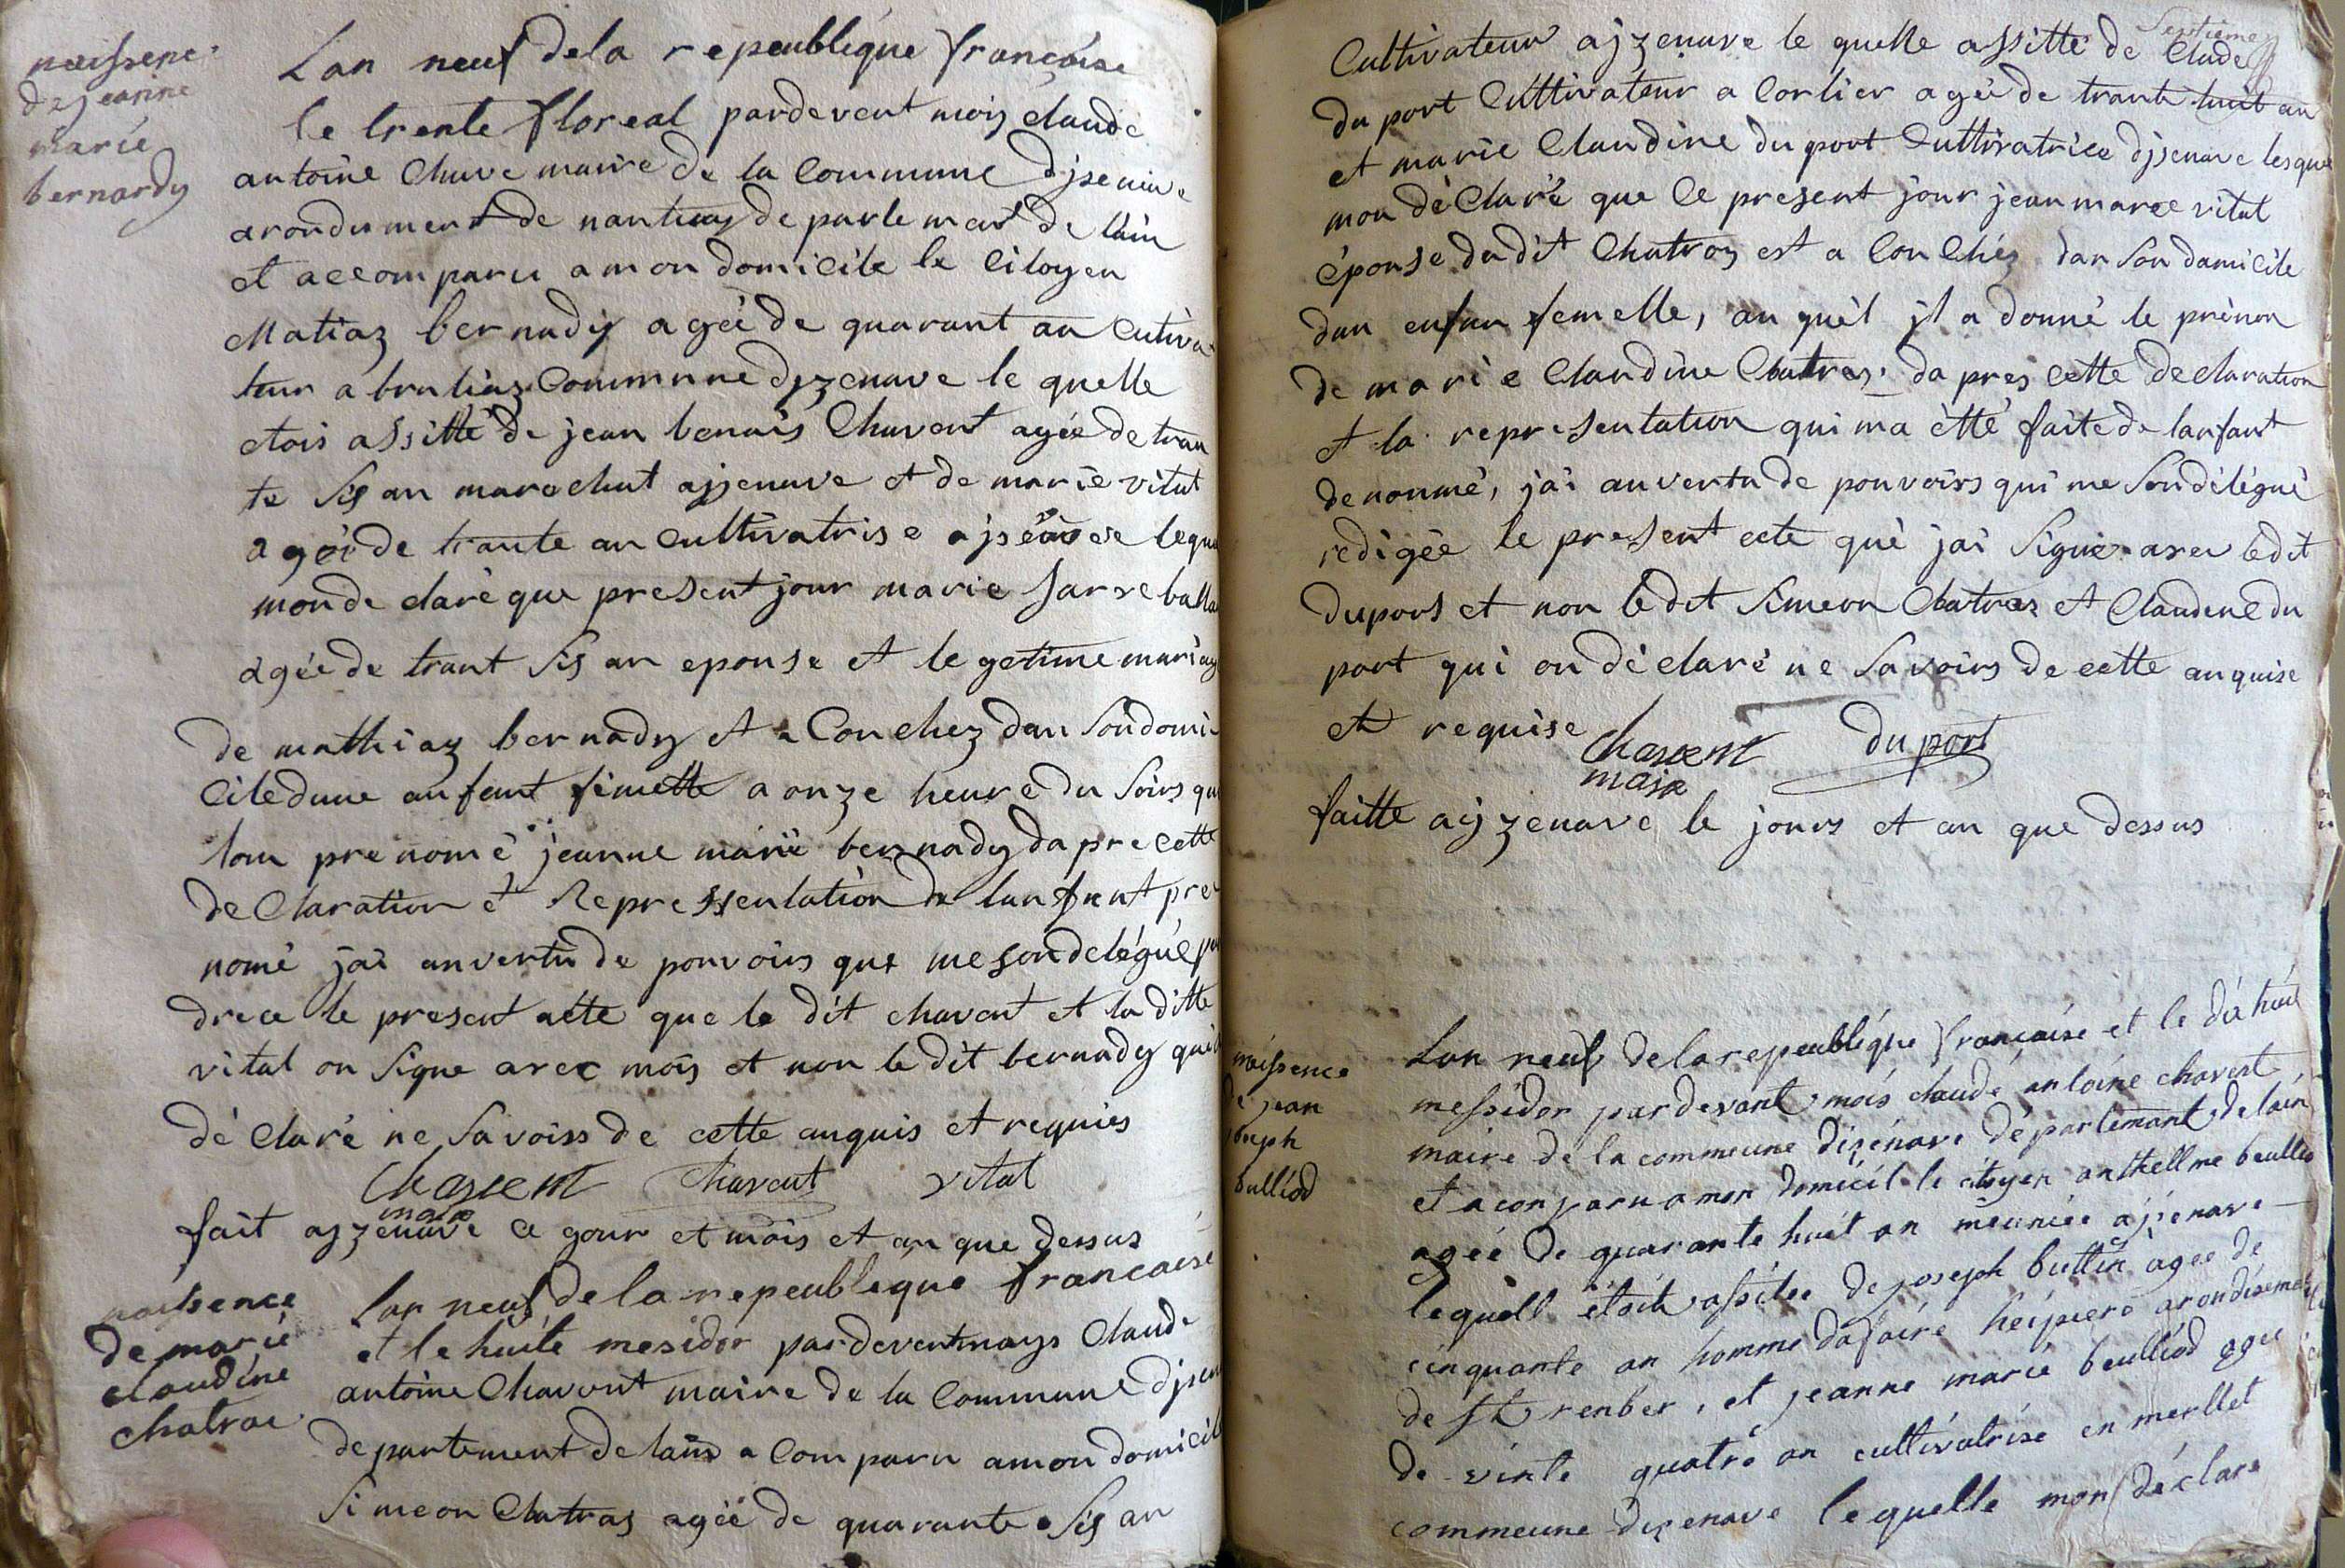 naissence
de jeanne
marie
bernardy
Lan neuf dela repeublique francaise
le trente floreal pardevent mois claude
antoine Chave maire de la Commune djsenave
arondument de nantuay de parlement de lain
et accomparu a mon domicile le Citoyen
Matiaz bernady agée de quarant an Cutiva
teur a brulliaz Commnne dyzenave le quelle
etois assitté de jean benois Chavent agée de tran
te sis an marechat ajsenave et de marie vital
agée de trante an Cultivatrise ajsenave lequel
mon de claré que present jour marie
agée de trant sis an epouse et le getime mariag
de mathiaz bernady et a Conchez dan Son domi
Cile dune anfant fimelle a onze heure du Soirs qu
lon prenomé jeanne marie bernady da pre cette
de Claration et Repressentation de lanfent pre
nomé jai anvertu de pouvoirs que me son delégué
drece le present acte que le dit chavent et la ditte
vital on Signe avec mois et non le dit bernady qui
dé Claré ne Savoiss de cette anquis et requies
Chavent Chavent vital
maire
fait ayzenave ce gour et mois et an que dessus
naissence
de marie
claudine
chatrac
Lan neuf de la repeublique francaise
et le huite mesidor pardeventmoys Claude
antoine Chavent maire de la Commune djsen
departement de lain a Comparu amon domicil
Simeon Chatras agée de quarante Sis an
Cultivateur ajzenave le quelle assitté de Claude
du port Cultivateur a Corlier agée de trante huit an
et marie Claudine du port Cultivatrice djsenave lesque
mon dé Claré que ce present jour jean marie vital
épouse dudit Chatroz est a Conchéz dan Son damicile
dun enfan femelle, au quèl jl a donné le prénon
de marie Claudine Chatras. da pres cette declaration
et la representation qui ma étté faite de lanfant
denommé, jai anvertu de pouvoirs qui me Son délégué
redigée le present acte què jai Signé avec ledit
duport et non ledit Simeon Chatras et Claudene du
port qui on déclaré ne Savoirs de cette anquise
et requise
Chavent du port
maire
faitte aijzenave le jours et an que dessus
naissence
de jean
joseph
bulliod
Lan neuf dela repeublique francaise et le dix huit
messidor pardevant mois claude antoine chavent
maire de la commeune dizenave département de lain
et a conparu a mon domicil le citoyen anthellme beullio
agée de quarante huit an meuniée ajsenave
lequell étoit assitée de joseph buttin agée de
cinquante an homme dafaire arondisement
de St renber, et jeanne marie beulliod agée
de vinte quatre an cultivatrise en merllet
commeune dizenave lequelle mon déclare